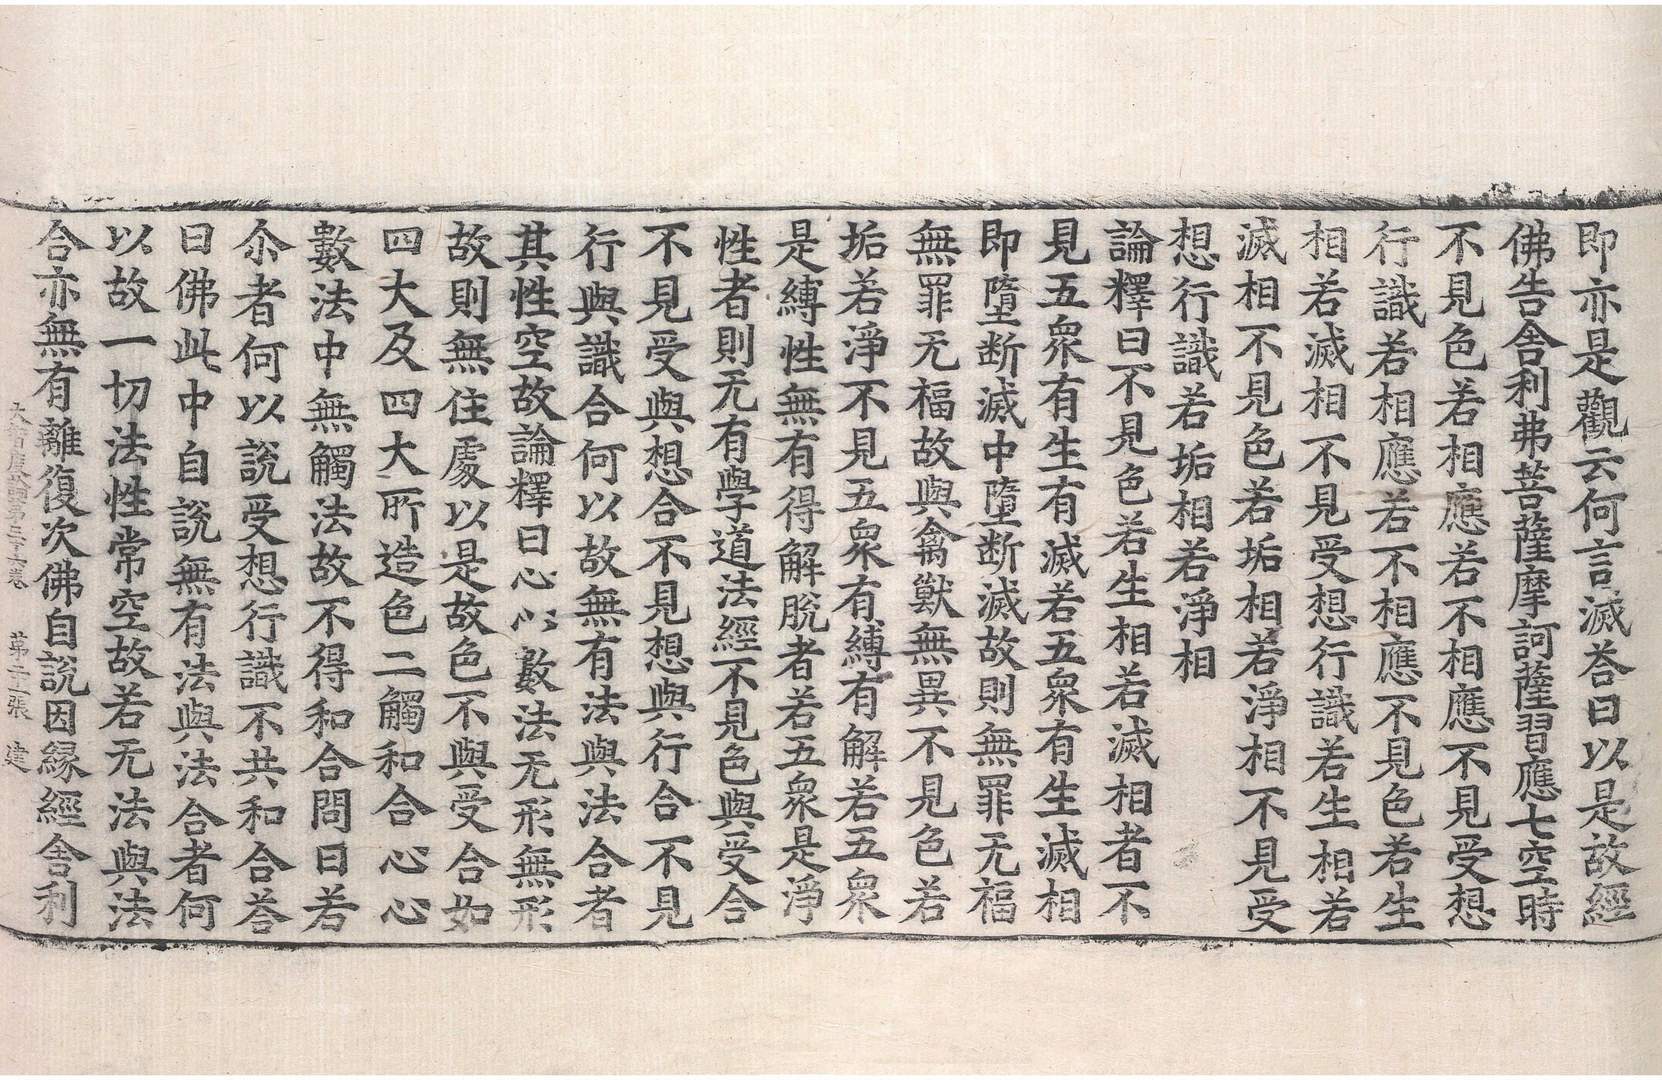 即亦是觀云何言滅荅曰以是故經
佛告舎利弗菩薩摩訶薩習應七空時
不見色若相應若不相應不見受想
行識若相應若不相應不見色若生
相若滅相不見受想行識若生相若
滅相不見色若垢相若淨相不見受
想行識若垢相若淨相
論釋曰不見色若生相若滅相者不
見五衆有生有滅若五衆有生滅相
即墮断滅中墮断滅故則無罪无福
無罪无福故與禽獸無異不見色若
垢若淨不見五衆有縛有解若五衆
是縛性無有得解脫者若五衆是淨
性者則无有學道法經不見色與受合
不見受與想合不見想與行合不見
行與識合何以故無有法與法合者
其性空故論釋曰心心數法无形無形
故則無住處以是故色不與受合如
四大及四大所造色二觸和合心心
數法中無觸法故不得和合問曰若
尒者何以說受想行識不共和合荅
曰佛此中自說無有法與法合者何
以故一切法性常空故若无法與法
合亦無有離復次佛自說因緣經舎利
大智度論第三十六卷 第二十一張 建